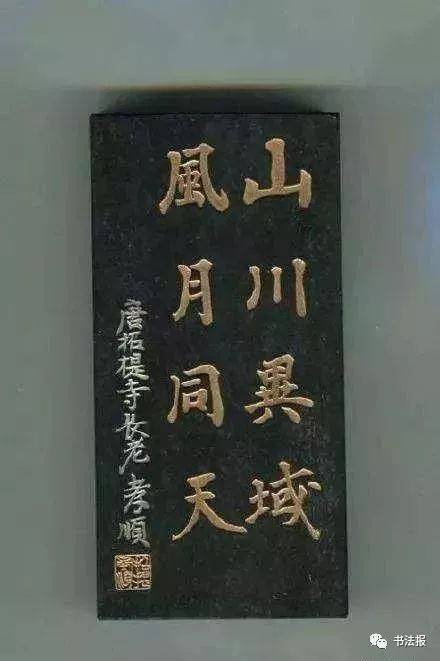 山川異域
風月同天
唐招提寺長老 孝順
书法报